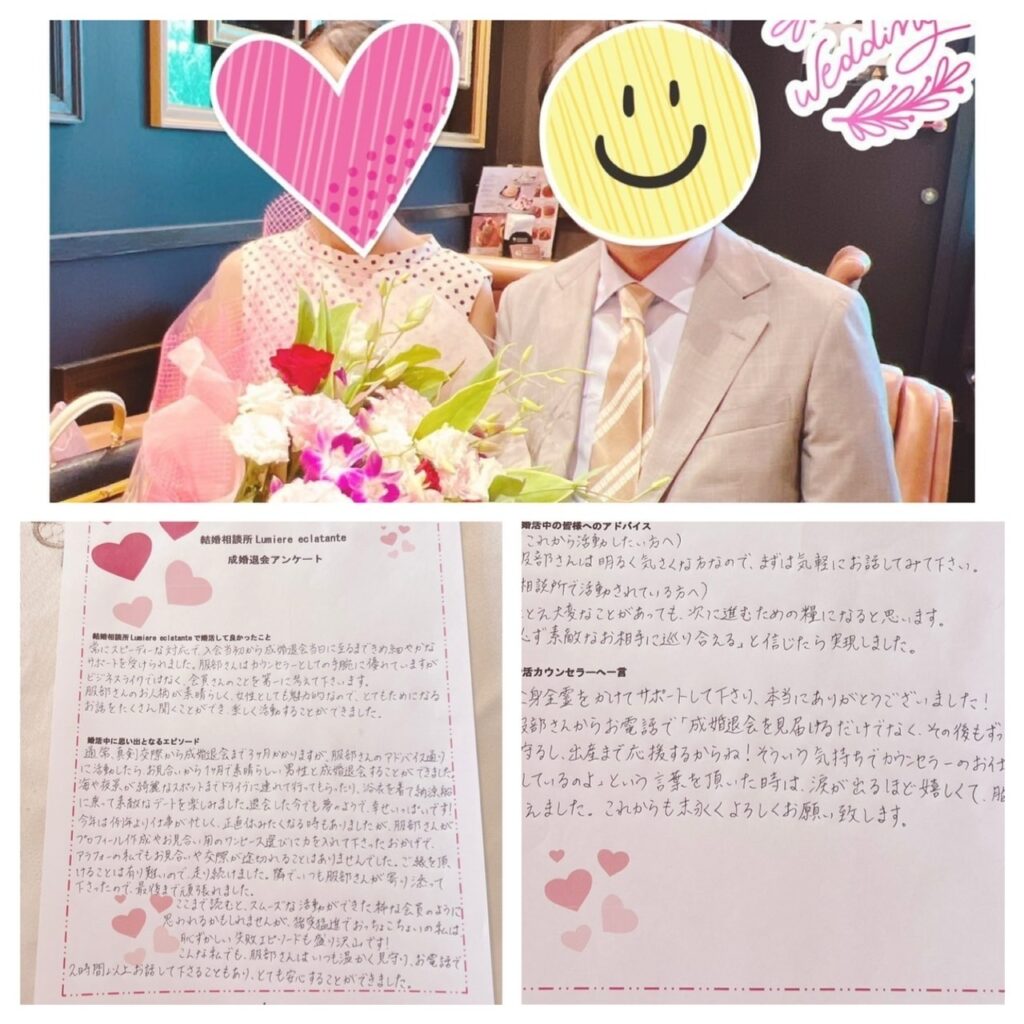 Wedding
結婚相談所Lumiere eclatante
成婚退会アンケート
結婚相談所Lumiere eclatanteで婚活して良かったこと
常にスピーディーな対応で、入会当初から成婚退会当日に至るまできめ細やかな
サポートを受けられました。服部さんはカウンセラーとしての手腕に優れていますが
ビジネスライクではなく、会員さんのことを第一に考えて下さいます。
服部さんのお人柄が素晴らしく、女性としても魅力的なので、とてもためになる
お話をたくさん聞くことができ、楽しく活動することができました。
婚活中に思い出となるエピソード
通常、真剣交際から成婚退会まで3ヶ月かかりますが、服部さんのアドバイス通り
に活動したらお見合いから1ヶ月で素晴らしい男性と成婚退会することができました。
海や夜景が綺麗なスポットまでドライブに連れて行ってもらったり、浴衣を着て納涼船
に乗って素敵なデートを楽しめました。退会した今でも夢のようで、幸せいっぱいです!
今年は例年より仕事が忙しく、正直休みたくなる時もありましたが、服部さんが
プロフィール作成やお見合い用のワンピース選びに力を入れて下さったおかげで、
アラフォーの私でもお見合いや交際が途切れることはありませんでした。ご縁を頂
けることは有り難いので、走り続けました。隣でいつも服部さんが寄り添って
下さったので、最後まで頑張れました。
ここまで読むと、スムーズな活動ができた粋な会員のように
思われるかもしれませんが、猪突猛進でおっちょこちょいの私は
恥ずかしい失敗エピソードも盛り沢山です!
こんな私でも、服部さんはいつも温かく見守り、お電話で
2時間以上お話して下さることもあり、とても安心することができました。
婚活中の皆様へのアドバイス
これから活動したい方へ)
服部さんは明るく気さくな方なので、まずは気軽にお話してみて下さい。
相談所で活動されている方へ)
とえ大変なことがあっても、次に進むための糧になると思います。
必ず素敵なお相手に巡り合える」と信じたら実現しました。
活カウンセラーへ一言
全身全霊をかけてサポートして下り、本当にありがとうございました!
服部さんからお電話で「成婚退会を見届けるだけでなく、その後もずっ
守るし、出産まで応援するからね!そういう気持ちでカウンセラーのお仕
しているのよ」という言葉を頂いた時は、涙が出るほど嬉しくて、服
えました。これからも末永くよろしくお願い致します。